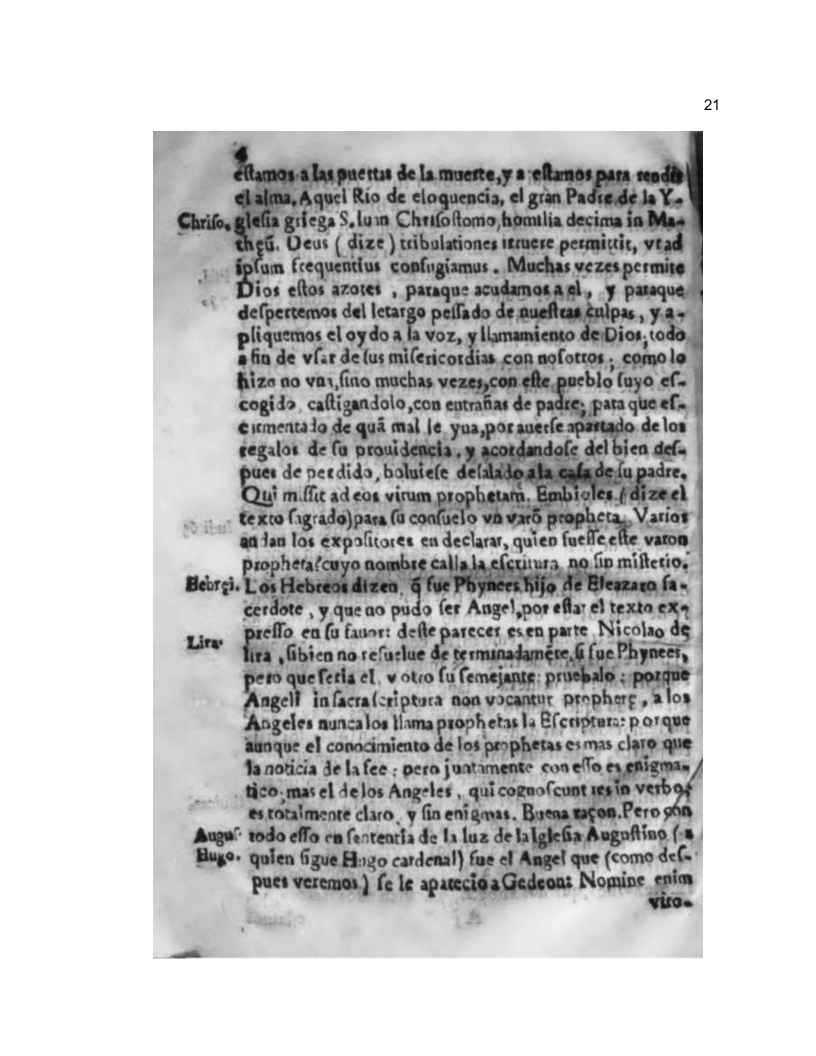 21
4
estamos a las puertas de la muerte, y a estamos para rendir
el alma. Aquel Rio de eloquencia, el gran Padre de la Y-
Chriso. glesia griega S. Iuan Chrisostomo, homilia decima in Ma-
theũ. Deus ( dize ) tribulationes irruere permittit, vt ad
ipsum frequentius confugiamus. Muchas vezes permite
Dios estos azotes , paraque acudamos a el , y paraque
despertemos del letargo pessado de nuestras culpas, y a-
pliquemos el oydo a la voz, y llamamiento de Dios, todo
a fin de vsar de sus misericordias con nosotros ; como lo
hizo no vna, sino muchas vezes, con este pueblo suyo es-
cogido castigandolo, con entrañas de padre; para que es-
cirmentado de quã mal le yua, por auerse apartado de los
regalos de su prouidencia , y acordandose del bien des-
pues de perdido, boluiese desalado a la casa de su padre.
Qui missit ad eos virum prophetam. Embioles ( dize el
texto sagrado) para su consuelo vn varõ propheta. Varios
andan los expositores en declarar, quien fuesse este varon
propheta? cuyo nombre calla la escritura no sin misterio.
Hebrei. Los Hebreos dizen, q̃ fue Phynees hijo de Eleazaro sa-
cerdote , y que no pudo ser Angel, por estar el texto ex-
presso en su fauor: deste parecer es en parte Nicolao de
Lira.
lira , si bien no resuelue de terminadamẽte, si fue Phynees,
pero que seria el, v otro su semejante: pruebalo : porque
Angeli in sacra scriptura non vocantur prophetę , a los
Angeles nunca los llama prophetas la Escriptura: porque
aunque el conocimiento de los prophetas es mas claro que
la noticia de la fee ; pero juntamente con esso es enigma-
tico; mas el de los Angeles , qui cognoscunt res in verbo,
es totalmente claro, y sin enigmas. Buena raçon. Pero con
Augus. todo esso en sentencia de la luz de la Iglesia Augustino ( a
Hugo. quien sigue Hugo cardenal) fue el Angel que (como des-
pues veremos ) se le aparecio a Gedeon: Nomine enim
viro-